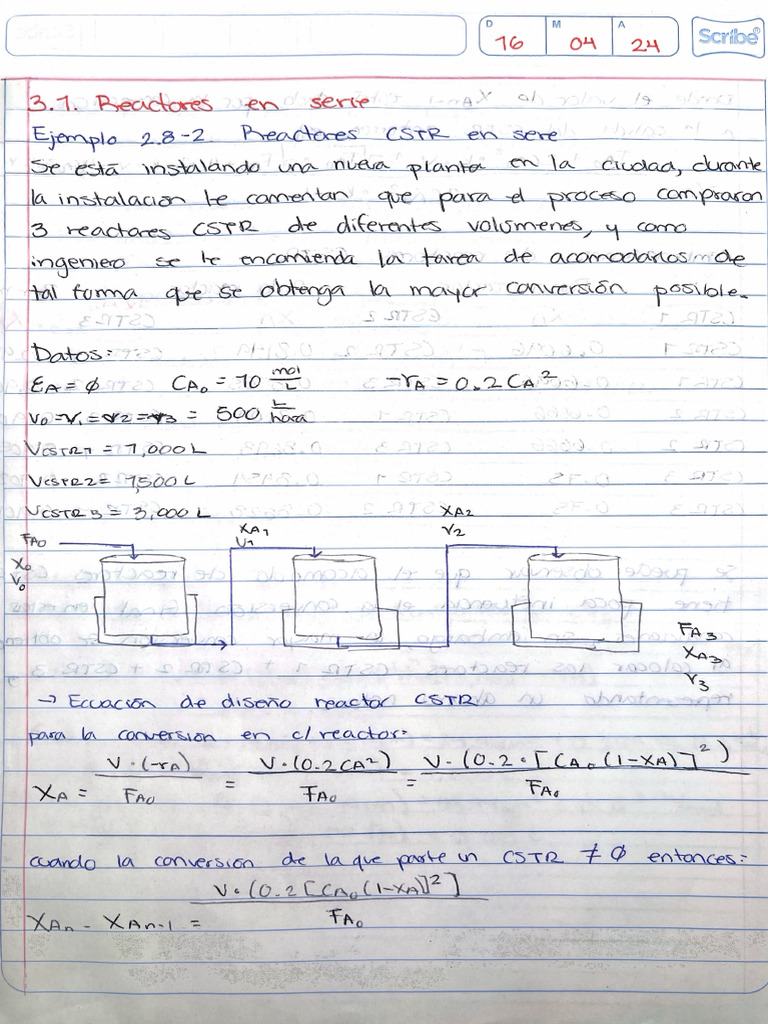 D 16 M 04 A 24 Scribe
3.1. Reactores en serie
Ejemplo 2.8-2. Reactores CSTR en sere
Se está instalando una nueva planta en la ciudad, durante
la instalacion te comentan que para el proceso compraron
3 reactores CSTR de diferentes volúmenes, y como
ingeniero se te encomienda la tarea de acomodarlos de
tal forma que se obtenga la mayor conversión posible.
Datos:
εA = ∅ CA₀ = 10 mol/L -rA = 0.2 CA²
v₀ = v₁ = v₂ = v₃ = 500 L/hora
VCSTR1 = 1,000 L
VCSTR2 = 1,500 L
VCSTR3 = 3,000 L
FA₀
X₀
V₀
XA₁
V₁
XA₂
V₂
FA₃
XA₃
V₃
→ Ecuación de diseño reactor CSTR
para la conversion en c/reactor:
XA = V·(-rA)/FA₀ = V·(0.2CA²)/FA₀ = V·(0.2·[CA₀(1-XA)]²)/FA₀
cuando la conversión de la que parte un CSTR ≠ ∅ entonces:
XAn - XAn-1 = V·(0.2[CA₀(1-XA)]²]/FA₀